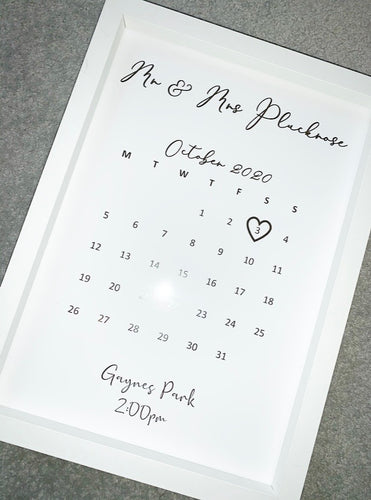 Mr & Mrs Pluckrose
October 2020
M T W T F S S
1 2 3 4
5 6 7 8 9 10 11
12 13 14 15 16 17 18
19 20 23 24 25
26 27 28 29 30 31
Gaynes Park
2:00pm